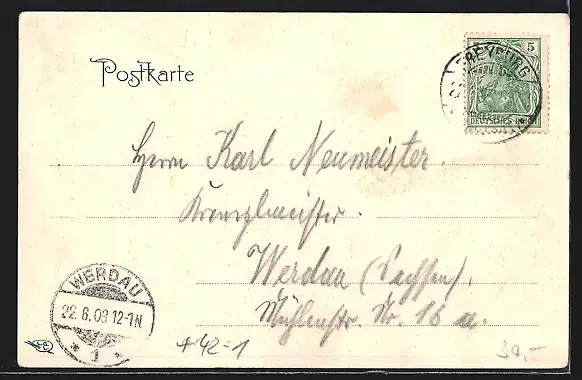 Postkarte
FREYBURG
5
DEUTSCHES REICH
Herrn Karl Neumeister.
Werdau (Sachsen).
Mühlenstr. Nr. 16 a.
WERDAU
22.6.03 12-1N
* 1 *
+42-1
39,-